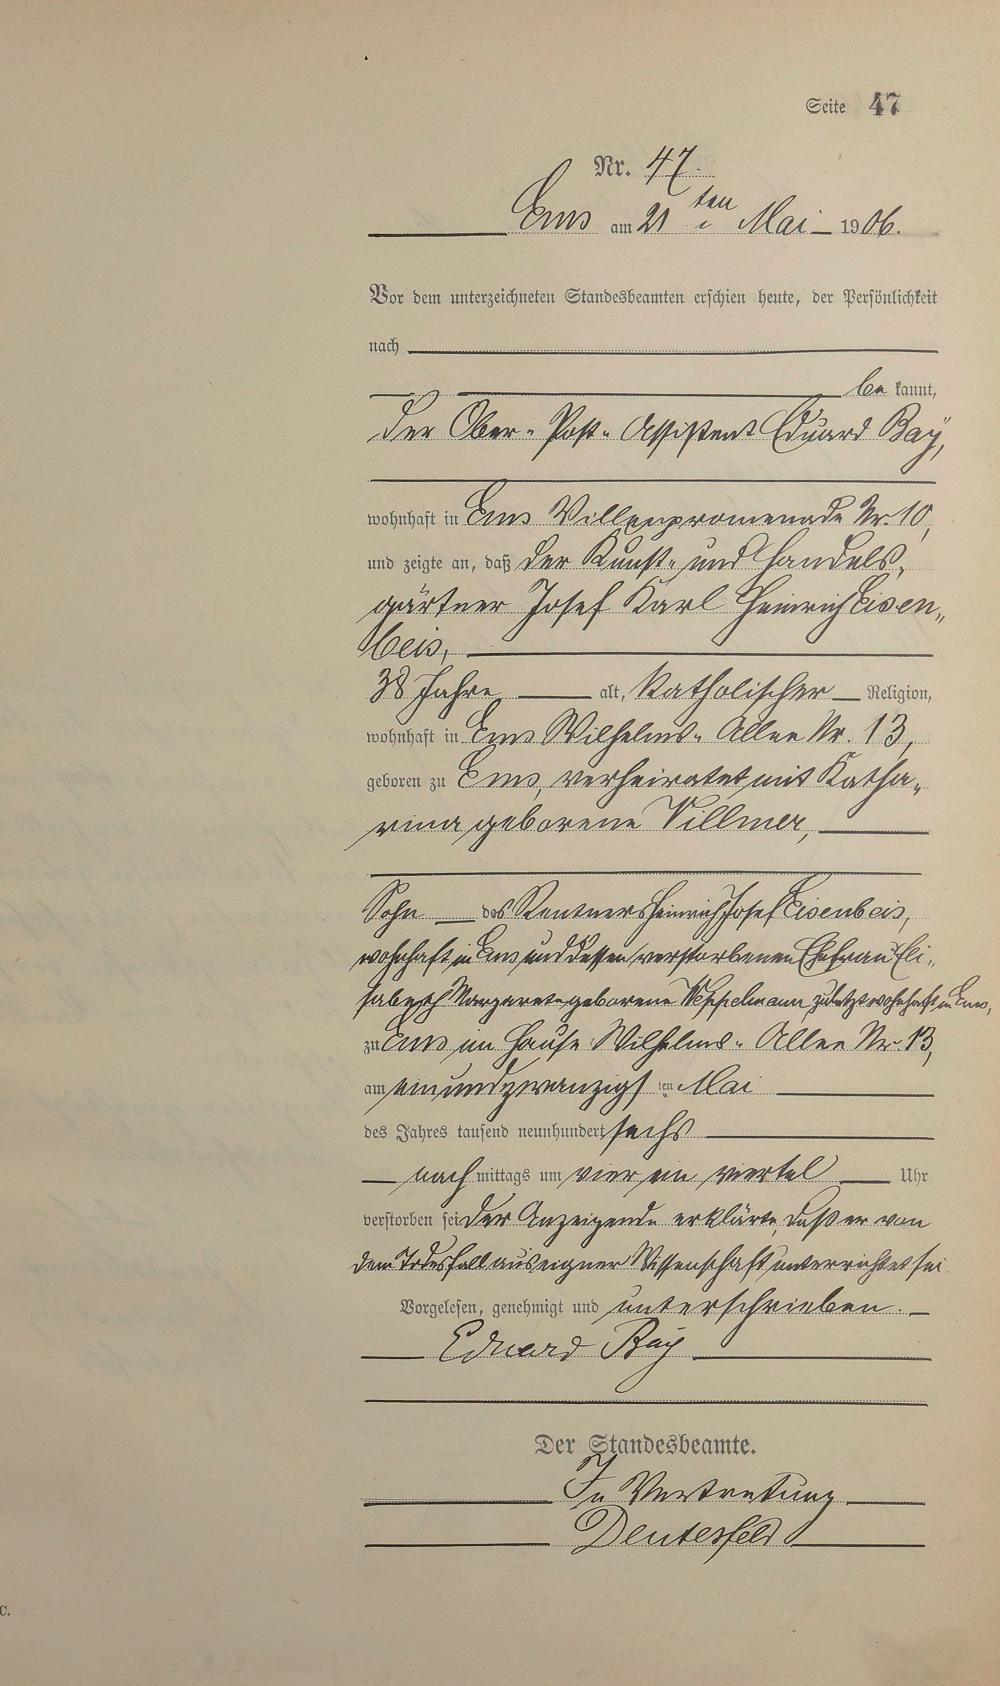 Seite 47
Nr. 47.
Ems am 21 ten Mai 1906.
Vor dem unterzeichneten Standesbeamten erschien heute, der Persönlichkeit
nach
be kannt,
der Ober-Post-Assistent Eduard Baÿ,
wohnhaft in Ems Villenpromenade Nr. 10,
und zeigte an, daß der Kunst- und Handels-
gärtner Josef Karl Heinrich Eisen-
beis,
38 Jahre alt, katholischer Religion,
wohnhaft in Ems Wilhelms-Allee Nr. 13,
geboren zu Ems, verheiratet mit Katha-
rina geborene Villmer,
Sohn des Rentners Heinrich Josef Eisenbeis,
wohnhaft in Ems und dessen verstorbenen Ehefrau Eli-
sabeth Margarete geborene zuletzt wohnhaft in Ems,
zu Ems im Hause Wilhelms-Allee Nr. 13,
am einundzwanzigsten Mai
des Jahres tausend neunhundert sechs
nachmittags um vier ein viertel Uhr
verstorben sei Der Anzeigende erklärte, daß er von
dem Todesfall aus eigner Wissenschaft unterrichtet sei
Vorgelesen, genehmigt und unterschrieben.
Eduard Baÿ
Der Standesbeamte.
In Vertretung
Deutesfeld
C.